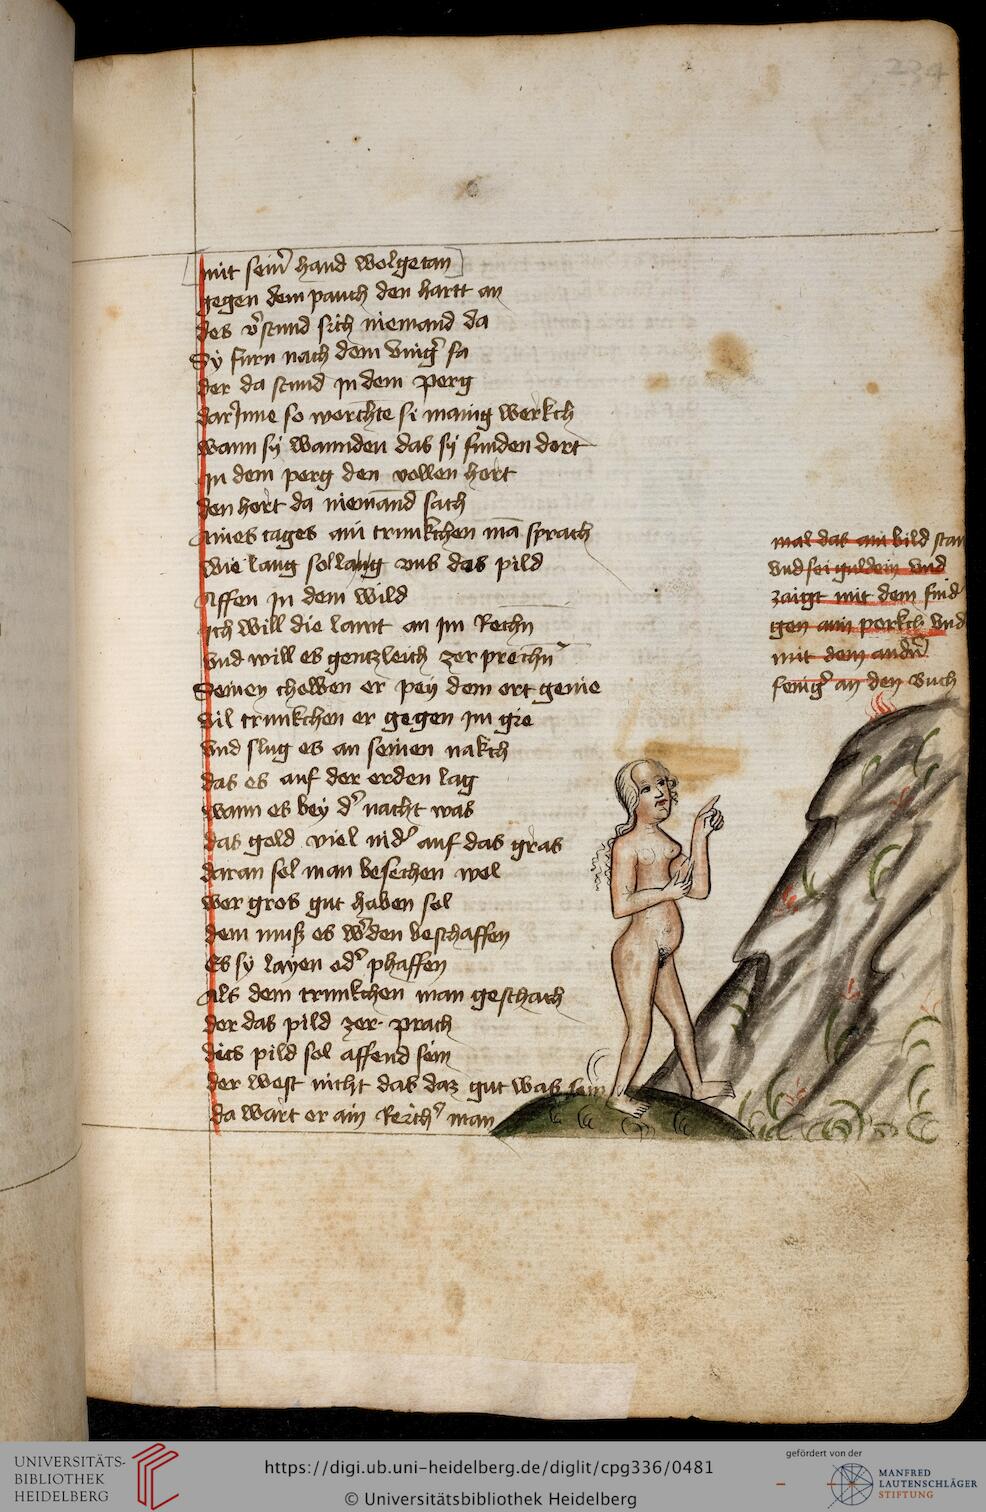 234
mit seinr hand wolgetan
gegen dem pauch den hartt an
des vrstund sich niemand da
Sy furn nach dem vingr sa
der da stund jn dem perg
darjnne so worchte si manig werkch
wann sy wannden das sy funden dort
jn dem perg den vollen hort
den hort da niemand sach
Aines tages ain trunkchen man sprach
wie lang sol lang vns das pild
Affen jn dem wild
ich will die lant an im Rechn
vnd will es gentzleich zerprechn
Seinen cholwen er pey dem ort genie
vil trunkchen er gegen jm gie
vnd slug es an seinen nakch
das es auf der erden lag
wann es bey dr nacht was
das gold viel nidr auf das gras
daran sol man besechen wol
wer gros gut haben sol
dem muß es wrden beschaffen
Es sy layen odr phaffen
Als dem trunkchen man geschach
der das pild zer prach
dits pild sol affend sein
der west nicht das daz gut was sein
da wart er ain Reichr man
mal das ain bild stan
vnd sei guldein vnd
zaigt mit dem find
gen ain perkch vnd
mit dem andrn
fenigr an den buch
UNIVERSITÄTS-
BIBLIOTHEK
HEIDELBERG
https://digi.ub.uni-heidelberg.de/diglit/cpg336/0481
© Universitätsbibliothek Heidelberg
gefördert von der
MANFRED
LAUTENSCHLÄGER
STIFTUNG